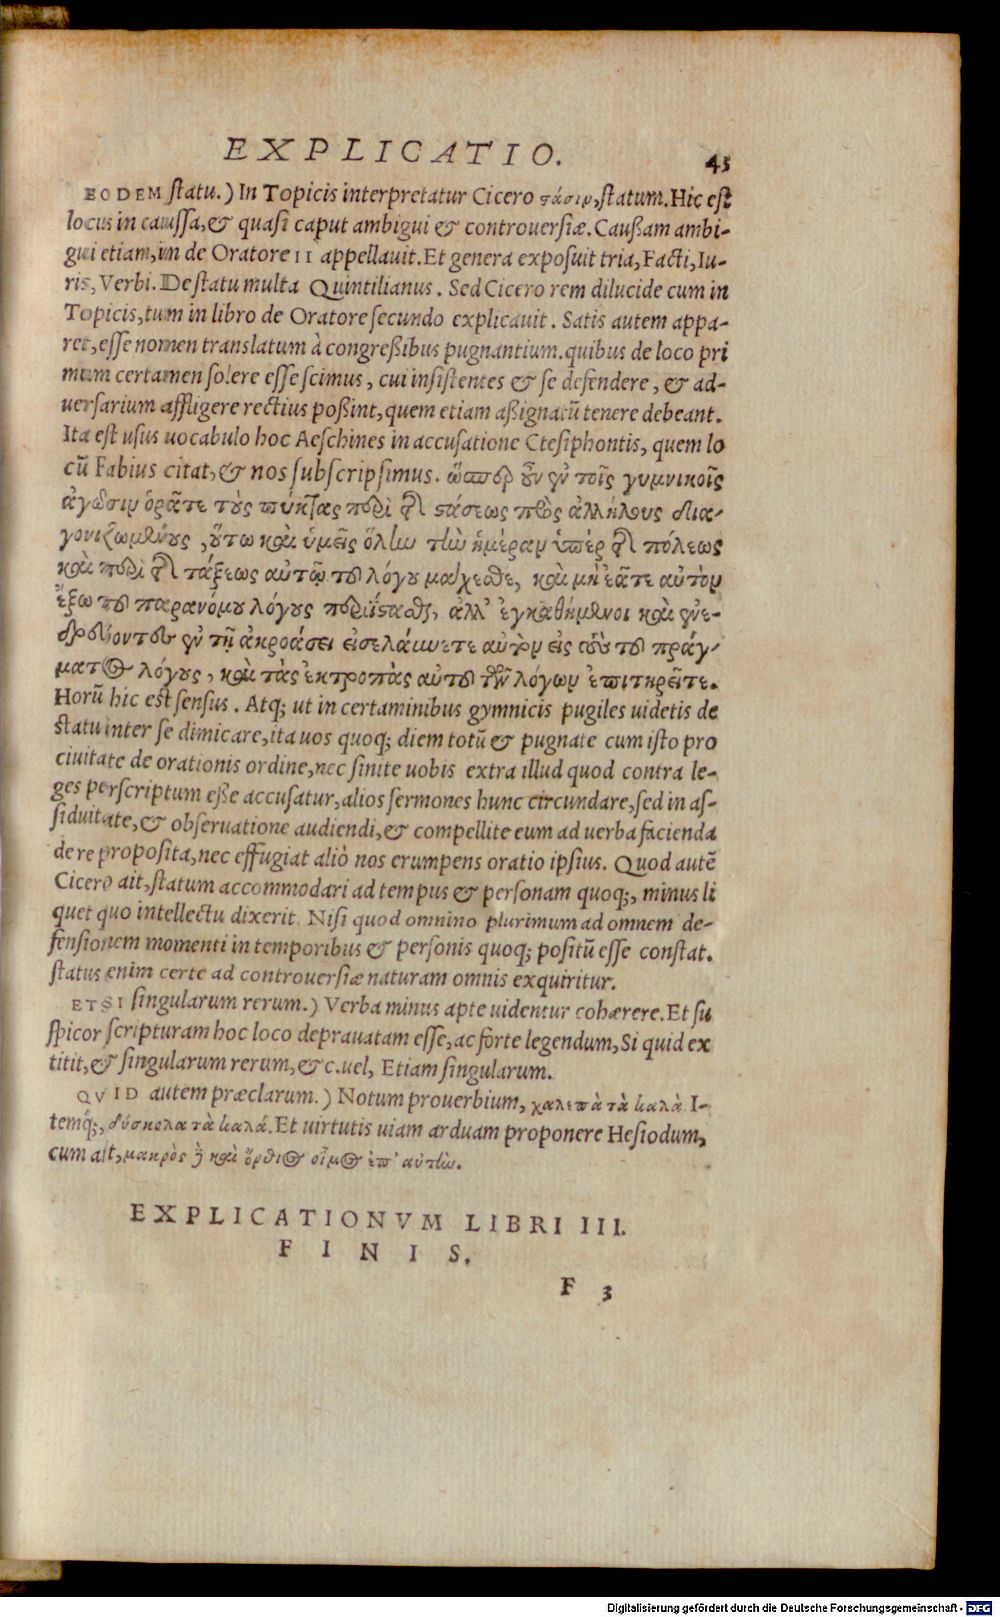 EXPLICATIO. 45
EODEM statu.) In Topicis interpretatur Cicero στάσιν, statum. Hic est
locus in caussa, & quasi caput ambigui & controuersiæ. Caußam ambi-
gui etiam, in de Oratore II appellauit. Et genera exposuit tria, Facti, Iu-
ris, Verbi. De statu multa Quintilianus. Sed Cicero rem dilucide cum in
Topicis, tum in libro de Oratore secundo explicauit. Satis autem appa-
ret, esse nomen translatum à congreßibus pugnantium. quibus de loco pri
mum certamen solere esse scimus, cui insistentes & se defendere, & ad-
uersarium affligere rectius poßint, quem etiam aßignatū tenere debeant.
Ita est usus uocabulo hoc Aeschines in accusatione Ctesiphontis, quem lo
cū Fabius citat, & nos subscripsimus. ὥσπερ οὖν ἐν τοῖς γυμνικοῖς
ἀγῶσιν ὁρᾶτε τοὺς πύκτας περὶ τῆς στάσεως πρὸς ἀλλήλους δια-
γονιζωμένους, οὕτω καὶ ὑμεῖς ὅλην τὴν ἡμέραν ὑπὲρ τῆς πόλεως
καὶ περὶ τῆς τάξεως αὐτῷ τοῦ λόγου μάχεσθε, καὶ μὴ ἐᾶτε αὐτὸν
ἔξω τοῦ παρανόμου λόγους περιΐστασθαι, ἀλλ' ἐγκαθήμενοι καὶ ἐνε-
δρεύοντες ἐν τῇ ἀκροάσει εἰσελάυνετε αὐτὸν εἰς τοὺς τοῦ πράγ-
ματος λόγους, καὶ τὰς ἐκτροπὰς αὐτοῦ τῶν λόγων ἐπιτηρεῖτε.
Horū hic est sensus. Atq; ut in certaminibus gymnicis pugiles uidetis de
statu inter se dimicare, ita uos quoq; diem totū & pugnate cum isto pro
ciuitate de orationis ordine, nec sinite uobis extra illud quod contra le-
ges perscriptum eße accusatur, alios sermones hunc circundare, sed in as-
siduitate, & obseruatione audiendi, & compellite eum ad uerba facienda
de re proposita, nec effugiat aliò nos erumpens oratio ipsius. Quod autē
Cicero ait, statum accommodari ad tempus & personam quoq;, minus li
quet quo intellectu dixerit. Nisi quod omnino plurimum ad omnem de-
fensionem momenti in temporibus & personis quoq; positū esse constat.
status enim certe ad controuersiæ naturam omnis exquiritur.
ETSI singularum rerum.) Verba minus apte uidentur cohærere. Et su
spicor scripturam hoc loco deprauatam esse, ac forte legendum, Si quid ex
titit, & singularum rerum, &c. uel, Etiam singularum.
QVID autem præclarum.) Notum prouerbium, χαλεπὰ τὰ καλά. I-
temq́;, δύσκολα τὰ καλά. Et uirtutis uiam arduam proponere Hesiodum,
cum ait, μακρὸς δὲ καὶ ὄρθιος οἶμος ἐπ' αὐτὴν.
EXPLICATIONVM LIBRI III.
FINIS.
F 3
Digitalisierung gefördert durch die Deutsche Forschungsgemeinschaft - DFG